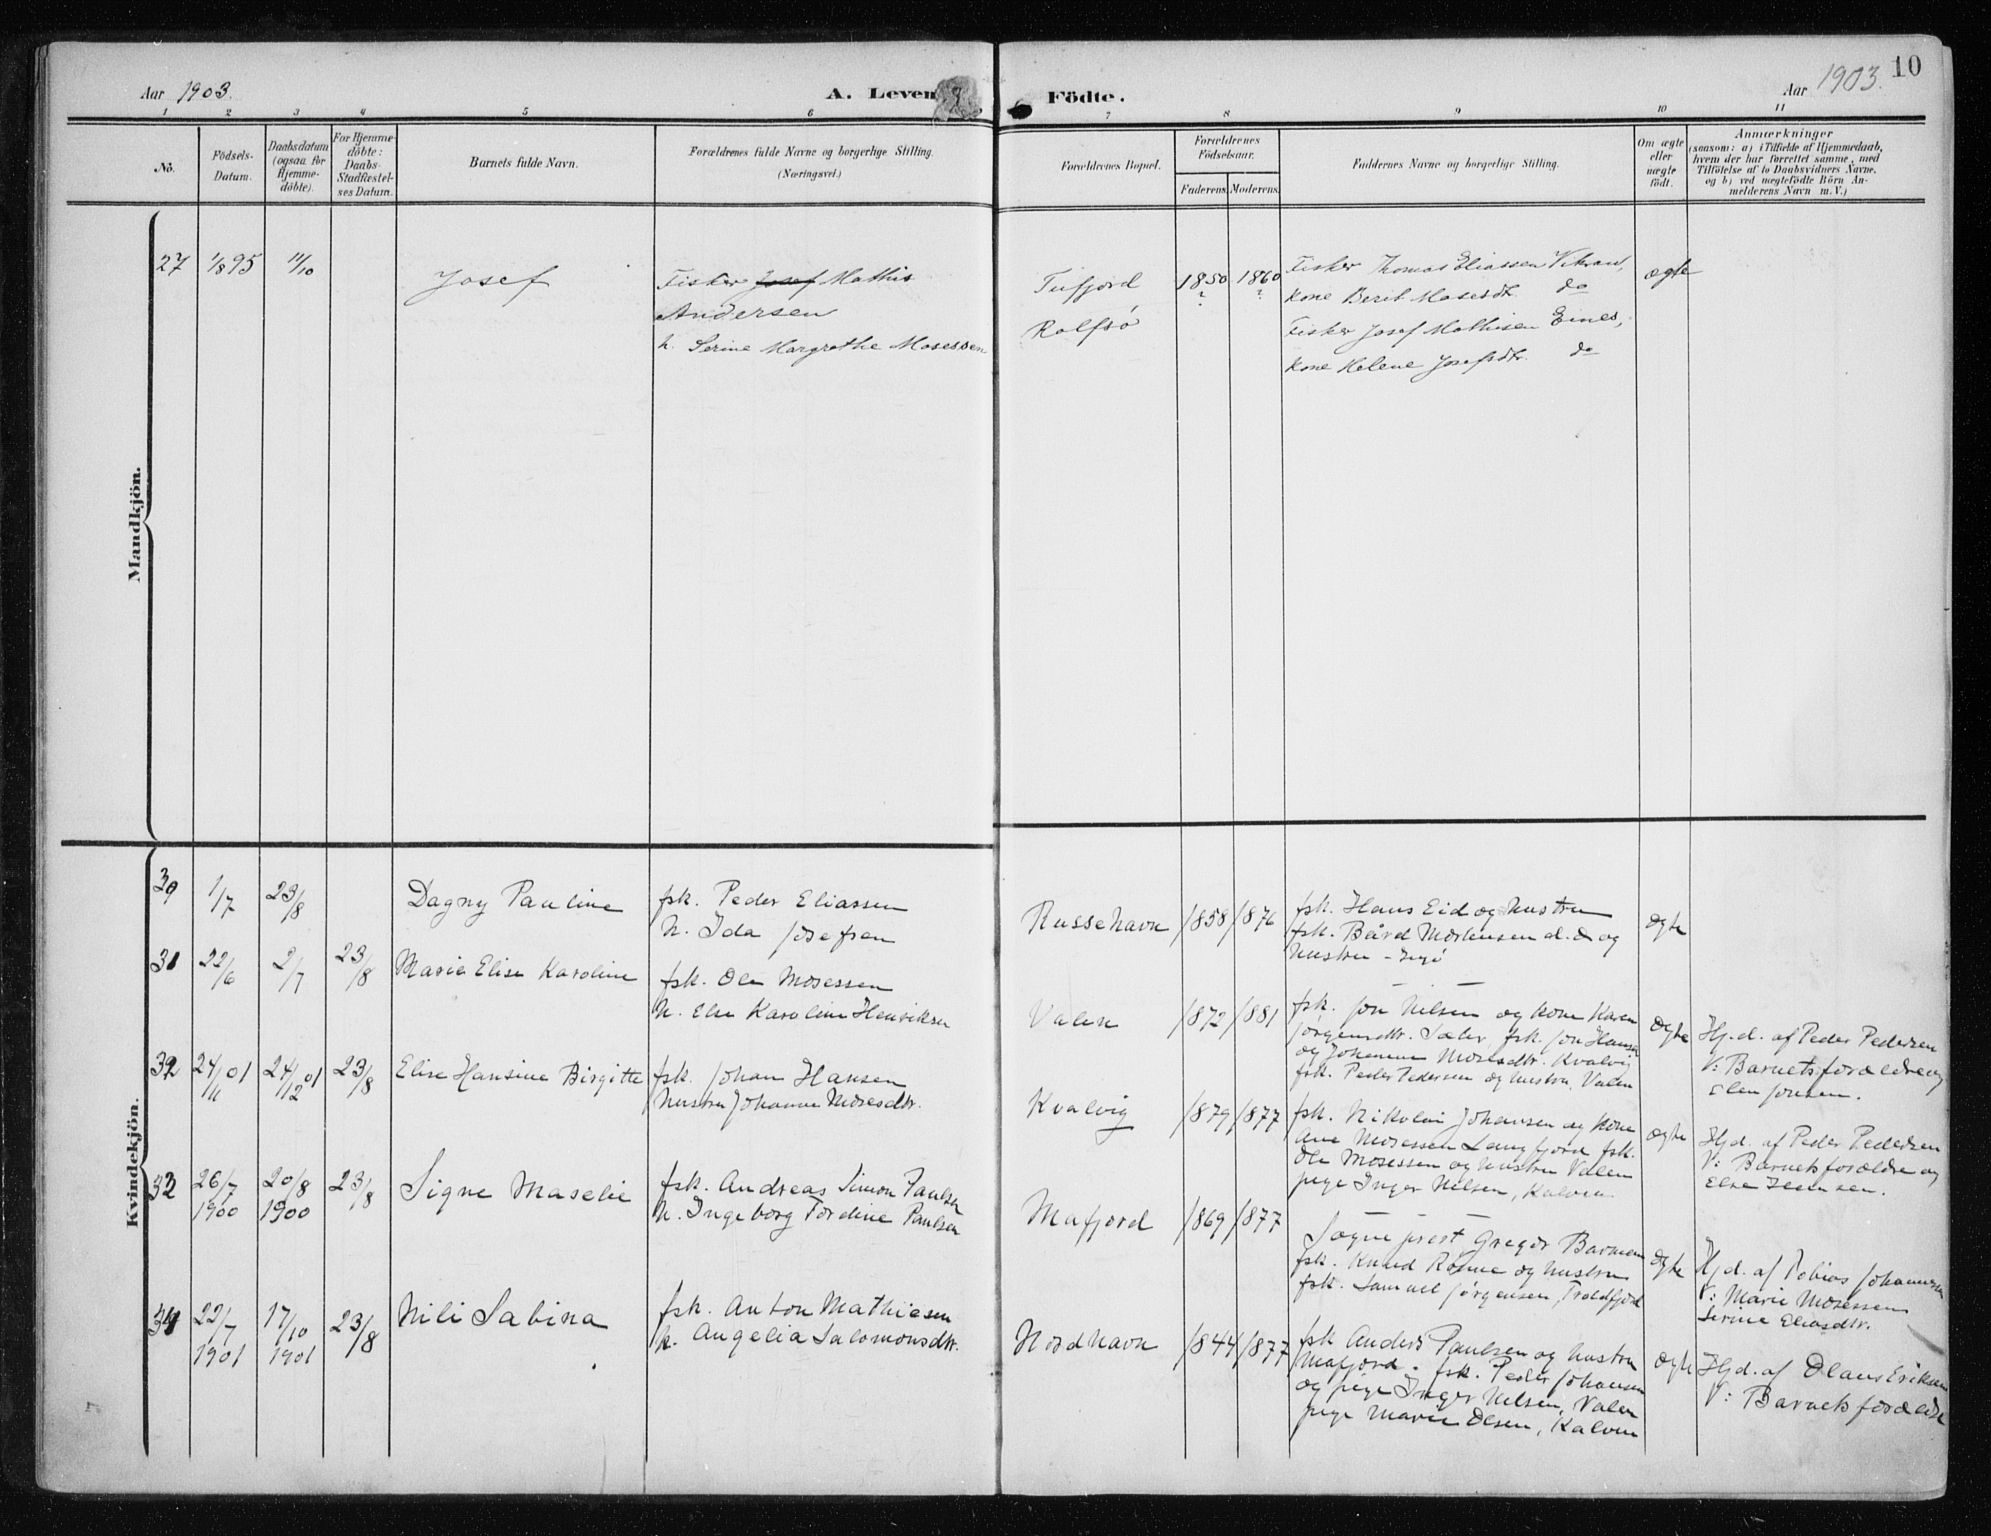 Aar 1903.
A. Leven
Födte.
Aar 1903.
10
1 2 3 4 5 6 7 8 9 10 11
No.
Födsels-
Datum.
Daabsdatum
(ogsaa for
Hjemme-
döbte).
For Hjemme-
döbte:
Daabs-
Stadfæstel-
ses Datum.
Barnets fulde Navn.
Forældrenes fulde Navne og borgerlige Stilling.
(Næringsvei.)
Forældrenes Bopæl.
Forældrenes
Födselsaar.
Faderens. Moderens.
Faddernes Navne og borgerlige Stilling.
Om ægte
eller
uægte
födt.
Anmærkninger
(saasom: a) i Tilfælde af Hjemmedaab,
hvem der har forrettet samme, med
Tilföielse af to Daabsvidners Navne,
og b) ved uægtefödte Börn An-
melderens Navn m. V.)
Mandkjön.
27 1/8 95 11/10 Josef
Fisker Josef Mathis
Andersen
h. Serine Margrethe Mosessen
Tufjord
Rolfsö
1850 ? 1860 ?
Fisker Thomas Eliassen Vikran,
kone Berit Mosesdtr. do
Fisker Josef Mathisen Eines,
kone Helene Josefsdtr. do
ægte
Kvindekjön.
30 1/7 23/8 Dagny Pauline
fsk. Peder Eliassen
h. Ida Josefsen
Russehavn 1858 1876
fsk. Hans Eid og hustru
fsk. Bård Mortensen d.d og
hustru - Ingö
ægte
31 22/6 2/7 23/8 Marie Elise Karoline
fsk. Ole Mosessen
h. Else Karoline Henriksen
Valen 1872 1881
fsk. Jon Nilsen og kone Karen
Jørgensdtr. Sæter, fsk. Jon Hansen
og Johanne Mosesdtr. Kvalvig
fsk. Peder Pedersen og hustru, Valen
ægte
Hj.d. af Peder Pedersen
V: Barnets forældre og
Elen Jonsen.
32 24/11 01 24/12 01 23/8 Elise Hansine Birgitte
fsk. Johan Hansen
hustru Johanne Mosesdtr.
Kvalvig 1879 1877
fsk. Nikolai Johansen og kone
Ane Mosessen Langfjord fsk.
Ole Mosessen og hustru Valen
pige Inger Nilsen, Kalven
ægte
Hjd. af Peder Pedersen
V: Barnets forældre og
Else Jensen.
33 26/7 1900 20/8 1900 23/8 Signe Maselie
fsk. Andreas Simon Paulsen
h. Ingeborg Tordine Paulsen
Mafjord 1869 1877
Sogneprest Gregor Barman
fsk. Knud Rønne og hustru
fsk. Samuel Jørgensen, Troldfjord
ægte
Hjd. af Tobias Johannesen
V: Marie Mosessen
Serine Eliasdtr.
34 22/7 1901 17/10 1901 23/8 Nili Sabina
fsk. Anton Mathiesen
h. Angelia Salomonsdtr.
Nordhavn 1844 1877
fsk Anders Paulsen og hustru
Mafjord. fsk. Peder Johansen
og pige Inger Nilsen, Valen
pige Marie Olsen, Kalven
ægte
Hjd. af Olaus Eriksen
V: Barnets forældre